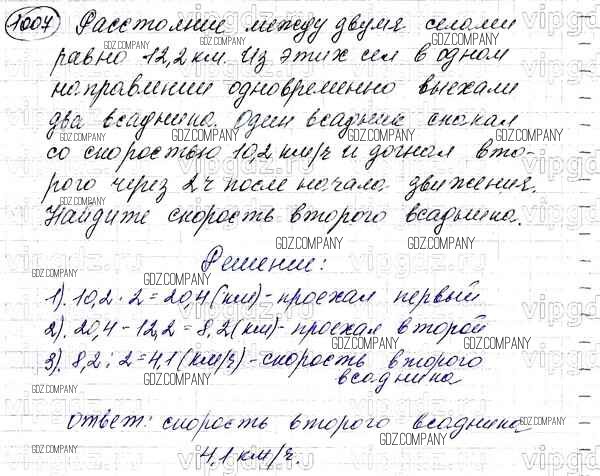 1007 Расстояние между двумя селами
равно 12,2 км. Из этих сел в одном
направлении одновременно выехали
два всадника. Один всадник скакал
со скоростью 10,2 км/ч и догнал вто-
рого через 2 ч после начала движения.
Найдите скорость второго всадника.
GDZ.COMPANY
Решение:
1). 10,2 · 2 = 20,4 (км) - проехал первый
2). 20,4 - 12,2 = 8,2 (км) - проехал второй
3). 8,2 : 2 = 4,1 (км/ч) - скорость второго
всадника
Ответ: скорость второго всадника
4,1 км/ч.
vipgdz.ru